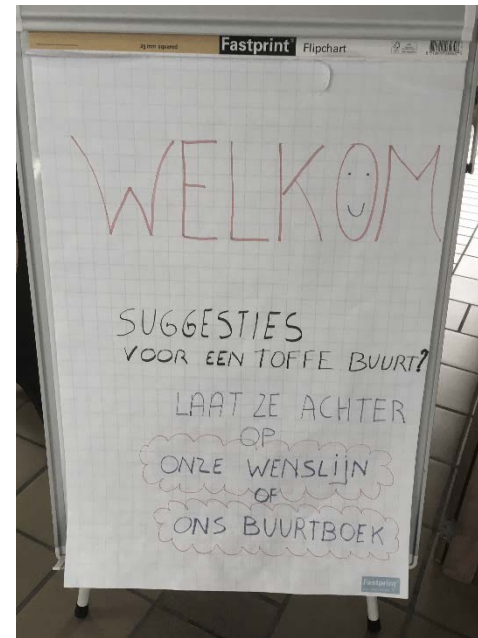 25 mm squared Fastprint Flipchart
WELKOM
SUGGESTIES
VOOR EEN TOFFE BUURT?
LAAT ZE ACHTER
OP
ONZE WENSLIJN
OF
ONS BUURTBOEK
Fastprint